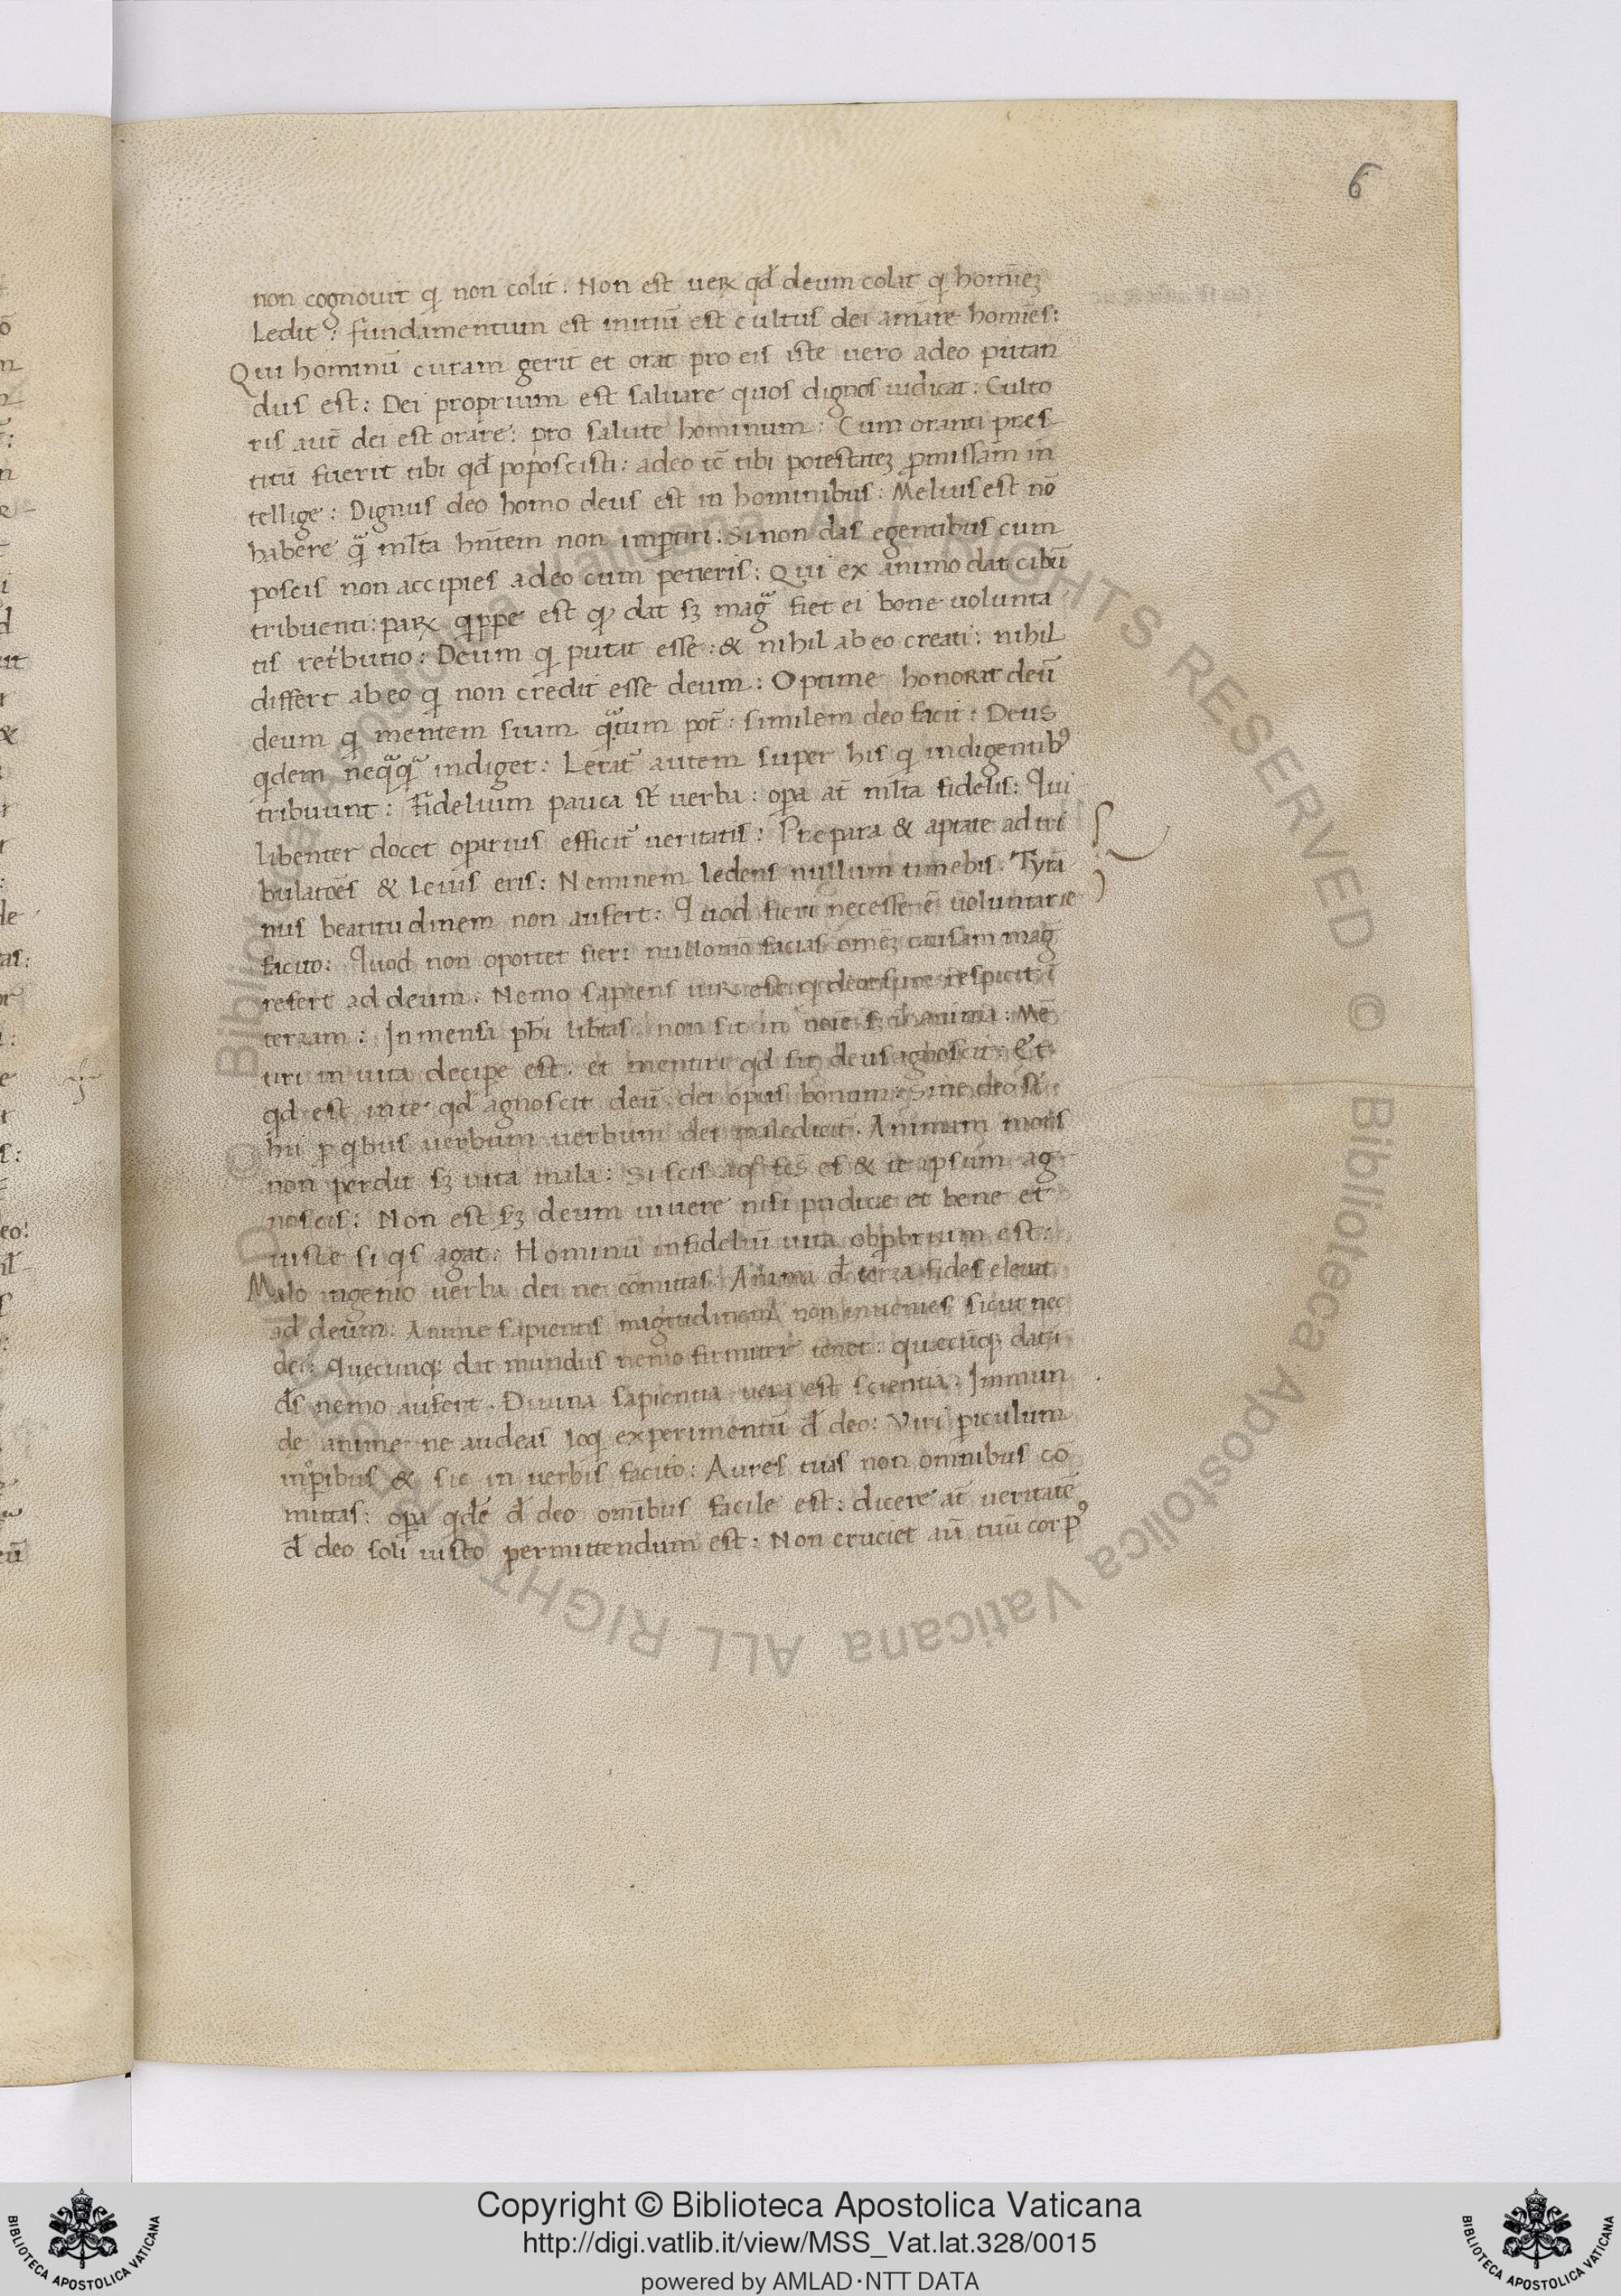 6
non cognouit q̇ non colit: Non est ueꝝ qđ deum colat q̇ homīeꝫ
Ledit: fundamentum est initiū est cultus dei amare homīes:
Qui hominū curam gerit et orat pro eis iste uero adeo putan
dus est: Dei proprium est saluare quos dignos iudicat: Culto
ris aut̄ dei est orare: pro salute hominum: Cum oranti pres
titū fuerit tibi qđ poposcisti: adeo tē tibi potestateꝫ ꝑmissam in
tellige: Dignus deo homo deus est in hominibus: Melius est nō
habere q̄ᵃ ml̄ta hn̄tem non imꝑtiri: Si non das egentibus cum
poscis non accipies adeo cum petieris: Qui ex animo dat cibū
tribuenti: paꝝ q̇ppe est qđ dat sꝫ magᵃ fiet ei bone uolunta
tis ret'butio: Deum q̇ putat esse: & nihil ab eo creati: nihil
differt ab eo q̇ non credit esse deum: Optime honorat deū
deum q̇ mentem suam qᵃtum pot̄: similem deo facit: Deus
q̇dem neqᵃqᵃ indiget: Letat̄ autem super his q̇ indigentibꝰ
tribuunt: Fidelium pauca st̄ uerba: oꝑa at̄ ml̄ta fidelis: Qui
libenter docet opitius efficit̄ ueritatis: Prepara & aptate ad tri
bulatōes & leuis eris: Neminem ledens nullum timebis. Tyrā
nus beatitudinem non aufert: Quod fieri necesse ē uoluntarie
facito: Quod non oportet fieri nullomō facias omēꝫ causam maḡ
refert ad deum. Nemo sapiens uir est q̇ deorsum respicit ī
terram: In mensa phī libtas non sit in noīe sꝫ in anima: Mē
tiri in uita decipe est. et mentiri qđ sit deus agnoscit: Et
qđ est in te qđ agnoscit deū. dei opus bonum: Sine deo st̄
hii ꝑ q̇bus uerbum uerbum dei maledicit̄. Animam mors
non perdit sꝫ uita mala: Si scis aq̇ es & te ipsum ag
noscis: Non est sꝫ deum uiuere nisi pudice et bene et
iuste si q̇s agat: Hominū infideliū uita obꝓbrium est:
Malo ingenio uerba dei ne cōmittas: Anima đ terra fides eleuat
ad deum: Anime sapientis magītudinem non inuenies sicut nec
dei: Quecunqꝫ dat mundus nemo firmiter tenet: quecūqꝫ dat
đs nemo aufert. Diuina sapientia uera est scientia. Immun
de anime ne audeas loq̇ experimentū đ deo: Viri ꝑiculum
in oꝑibus & sic in uerbis facito: Aures tuas non omnibus co
mittas: oꝑa q̇dē đ deo omībus facile est: dicere at̄ ueritatē
đ deo soli iusto permittendum est: Non cruciet aū tuū corpꝰ
Copyright © Biblioteca Apostolica Vaticana
http://digi.vatlib.it/view/MSS_Vat.lat.328/0015
powered by AMLAD·NTT DATA
BIBLIOTECA APOSTOLICA VATICANA
BIBLIOTECA APOSTOLICA VATICANA
© Biblioteca Apostolica Vaticana ALL RIGHTS RESERVED
© Biblioteca Apostolica Vaticana ALL RIGHTS RESERVED